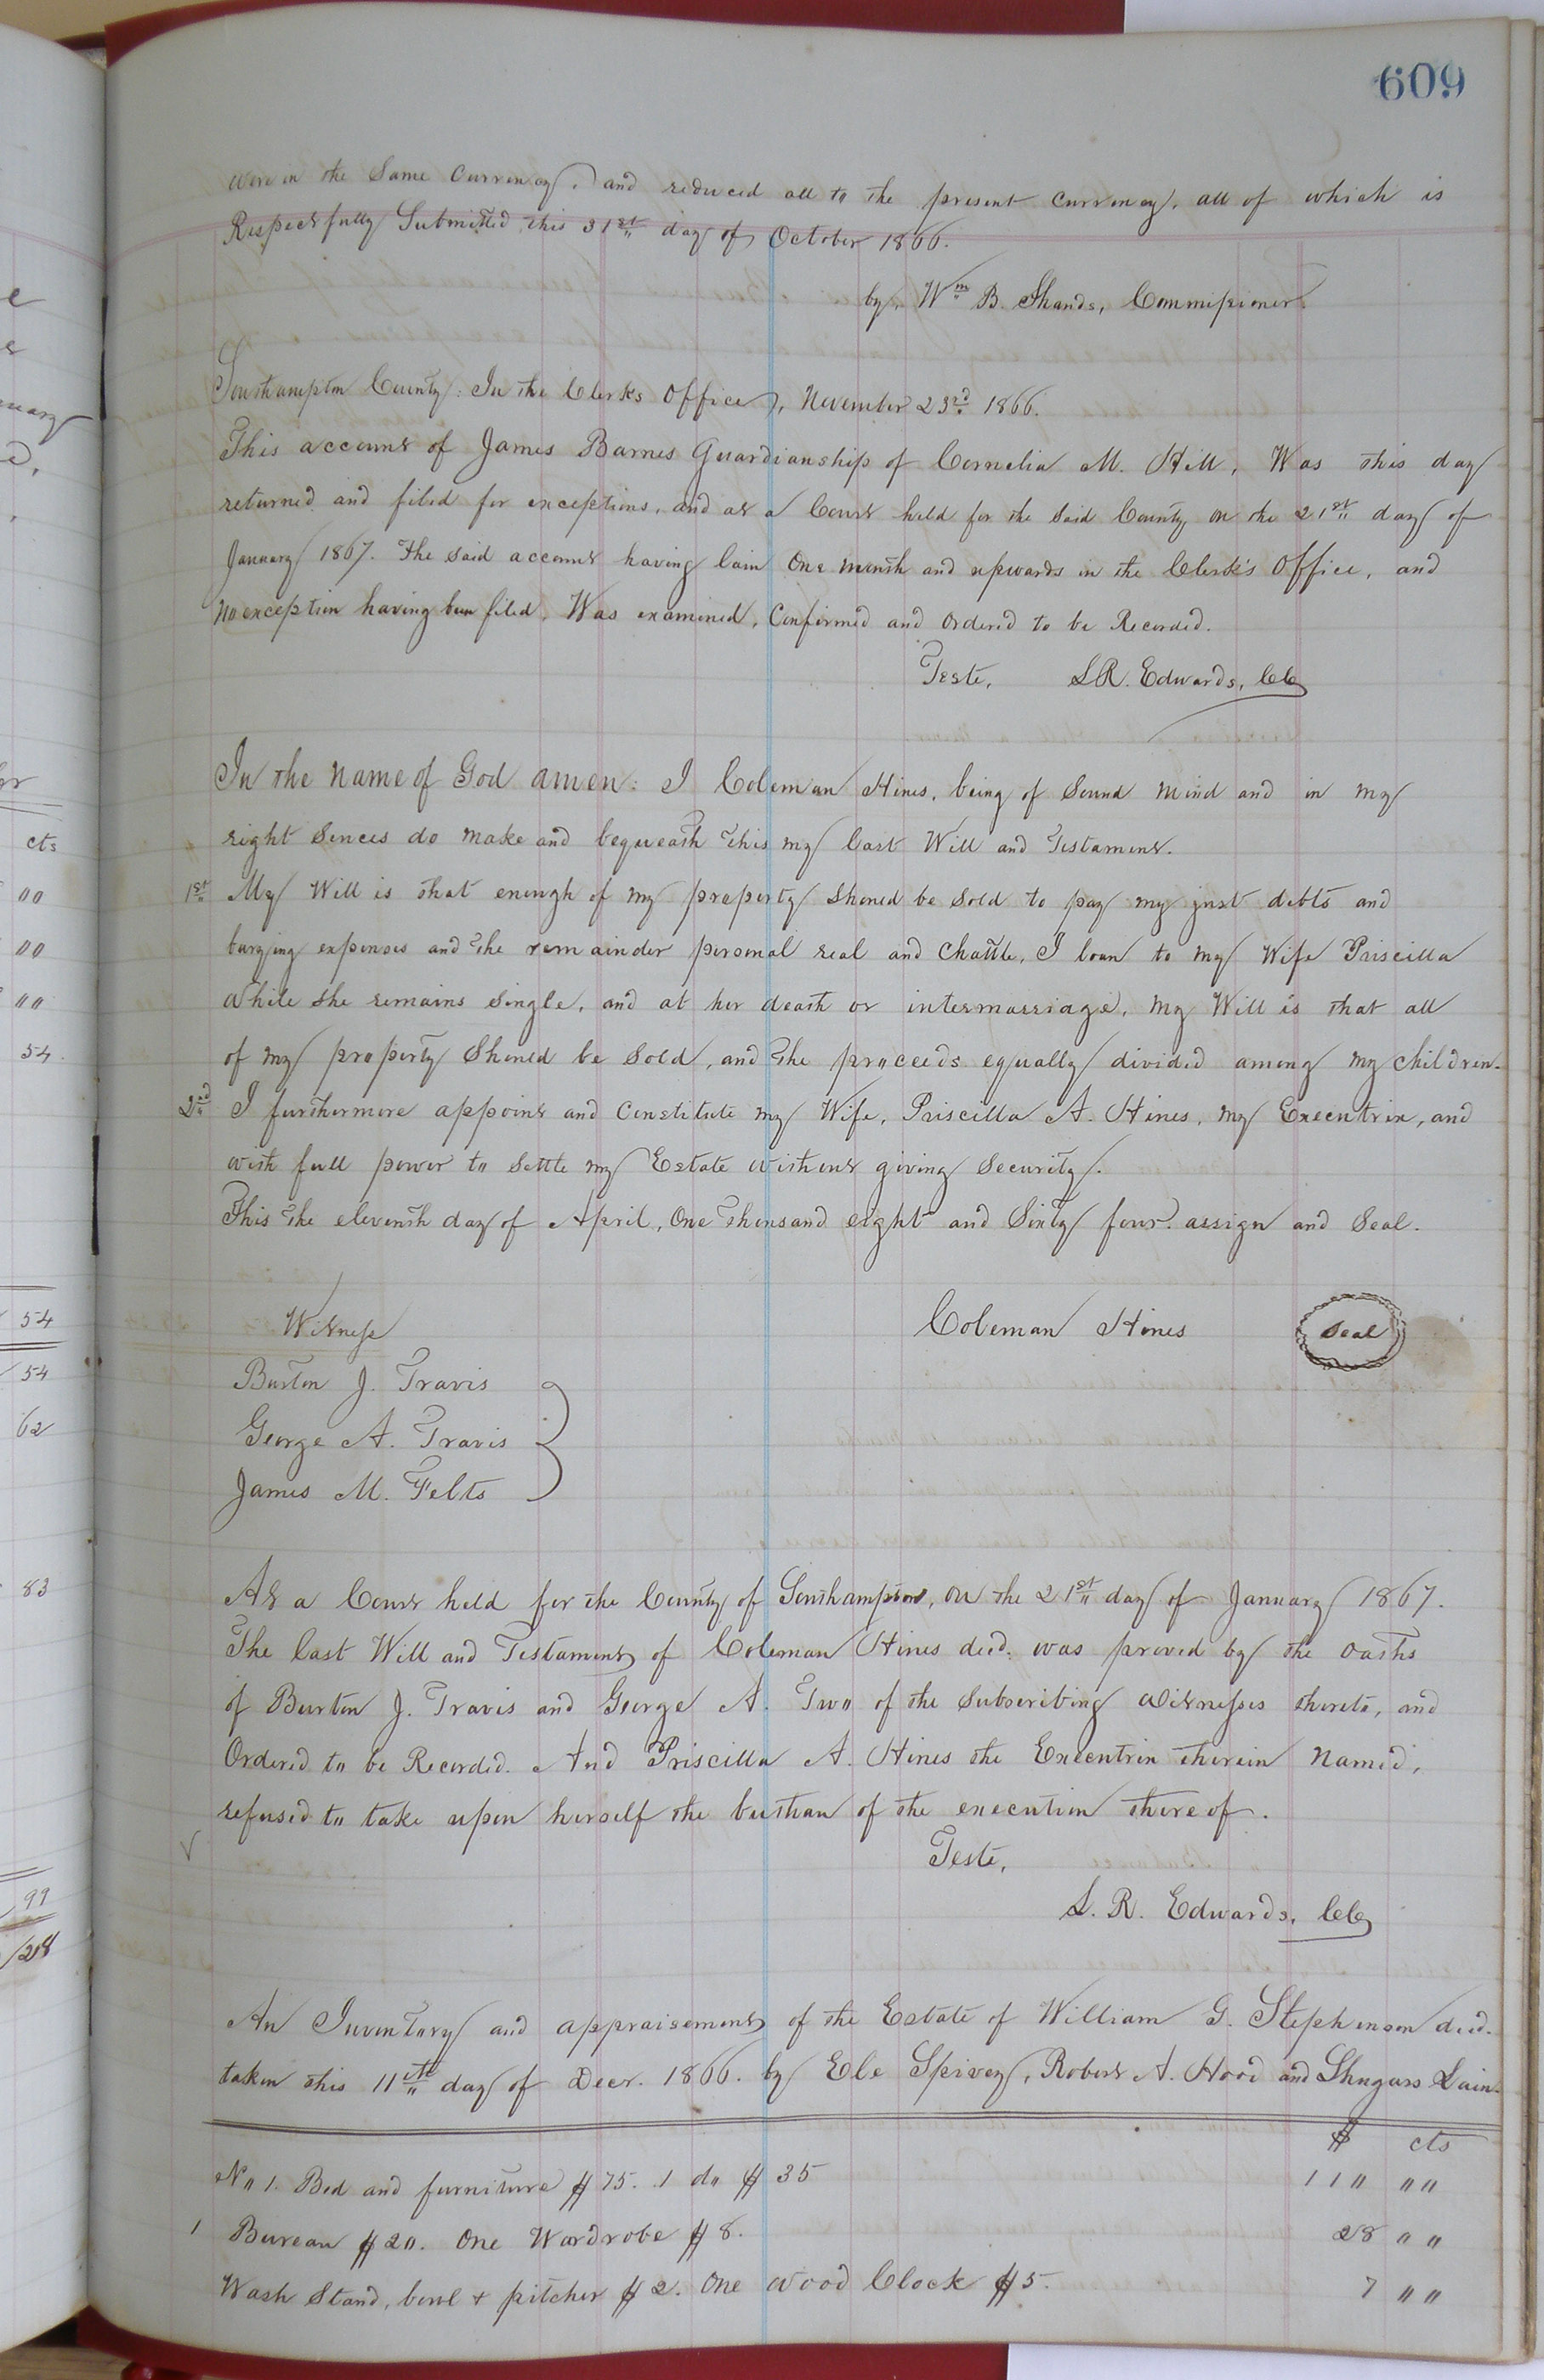 609
were in the Same Currency, and reduced all to the present currency. all of which is
Respectfully Submitted this 31st day of October 1866.
by, Wm B. Shands, Commissioner.
Southampton County: In the Clerks Office, November 23rd 1866.
This account of James Barnes Guardianship of Cornelia M. Hill, Was this day
returned and filed for exceptions, and at a Court held for the said County on the 21st day of
January 1867. The said account having lain One month and upwards in the Clerk's Office, and
no exception having been filed, Was examined, Confirmed and Ordered to be Recorded.
Teste, L.R. Edwards, CC
In the Name of God amen: I Coleman Hines, being of Sound Mind and in my
right Sinces do make and bequeath this my last Will and Testament.
1st My Will is that enough of my property should be Sold to pay my just debts and
burying expenses and the remainder personal real and Chattle, I loan to my Wife Priscilla
While she remains Single, and at her death or intermarriage, my Will is that all
of my property Should be Sold, and the proceeds equally divided among my children.
2nd I furthermore appoint and Constitute my Wife, Priscilla A. Hines, my Executrix, and
with full power to Settle my Estate without giving Security.
This the eleventh day of April, One Thousand eight and Sixty four. assign and Seal.
Witness Coleman Hines Seal
Burton J. Travis
George A. Travis
James M. Felts
At a Court held for the County of Southampton, on the 21st day of January 1867.
The last Will and Testament of Coleman Hines decd. was proved by the oaths
of Burton J. Travis and George A. Two of the Subscribing Witnesses thereto, and
Ordered to be Recorded. And Priscilla A. Hines the Executrix therein Named,
refused to take upon herself the burthan of the execution thereof.
Teste,
L. R. Edwards, CC
An Inventory and appraisement of the Estate of William G. Stephenson decd.
taken this 11th day of Decr. 1866. by Ele Spivey, Robert A. Hood and Shugars Lain.
$ cts
No 1. Bed and furniture $75. 1 do $35 110 00
1 Bureau $20. One Wardrobe $8. 28 00
Wash Stand, bowl + pitcher $2. One Wood Clock $5. 7 00
cts
00
00
00
54
54
54
62
83
99